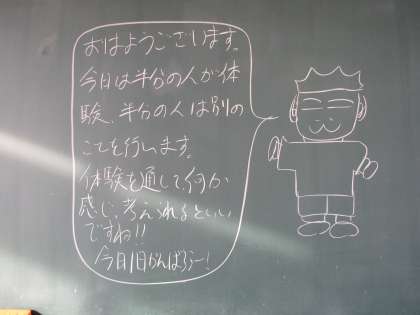 おはようございます。
今日は半分の人が体
験、半分の人は別の
ことを行います。
体験を通して、何か
感じ、考えられるといい
ですね!!
今日1日がんばろう〜!